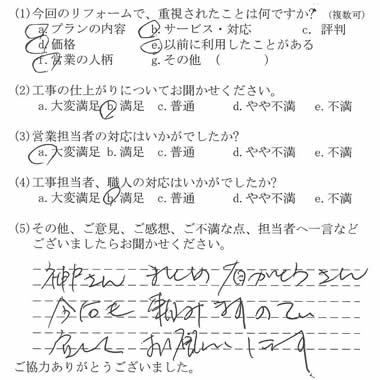 (1)今回のリフォームで、重視されたことは何ですか? (複数可)
a.プランの内容 b.サービス・対応 c. 評判
d.価格 e.以前に利用したことがある
f.営業の人柄 g.その他 ( )
(2)工事の仕上がりについてお聞かせください。
a.大変満足 b.満足 c.普通 d.やや不満 e.不満
(3)営業担当者の対応はいかがでしたか?
a.大変満足 b.満足 c.普通 d.やや不満 e.不満
(4)工事担当者、職人の対応はいかがでしたか?
a.大変満足 b.満足 c.普通 d.やや不満 e.不満
(5)その他、ご意見、ご感想、ご不満な点、担当者へ一言など
ございましたらお聞かせください。
神戸さん
今回も 頼みますので
宜しく お願いします
ご協力ありがとうございました。